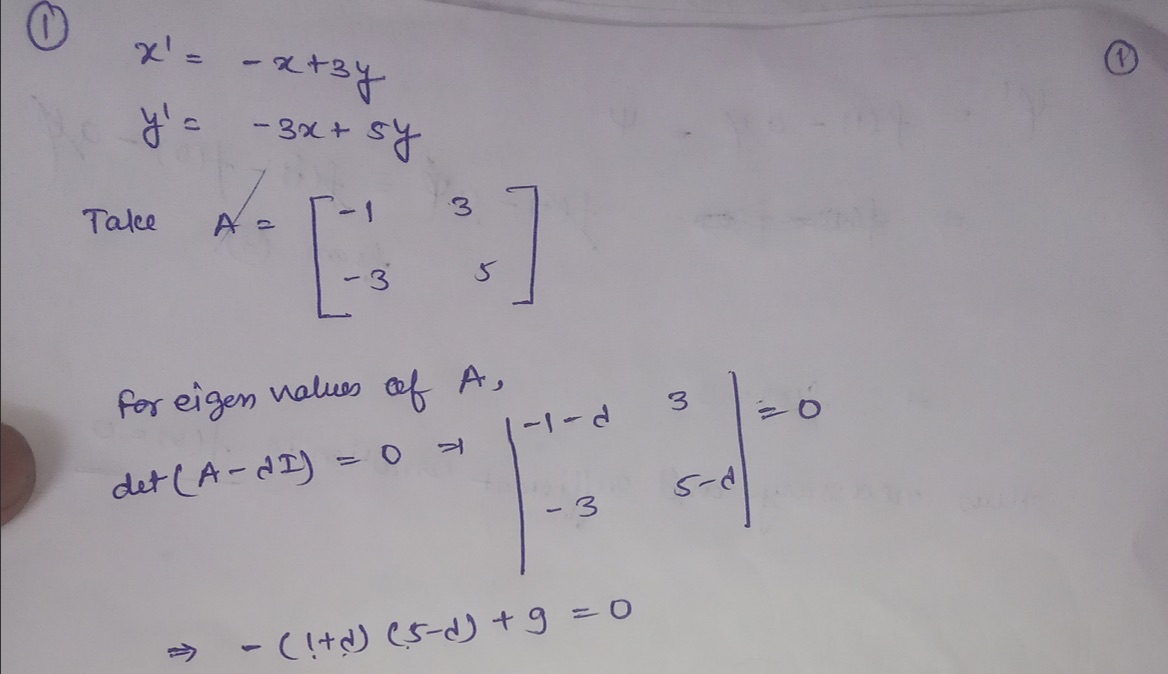 ① ①
x' = -x+3y
y' = -3x+5y
Take A = [ -1 3
-3 5 ]
for eigen values of A,
det(A-dI) = 0 ⇒ | -1-d 3
-3 5-d | = 0
⇒ -(1+d) (5-d) + 9 = 0